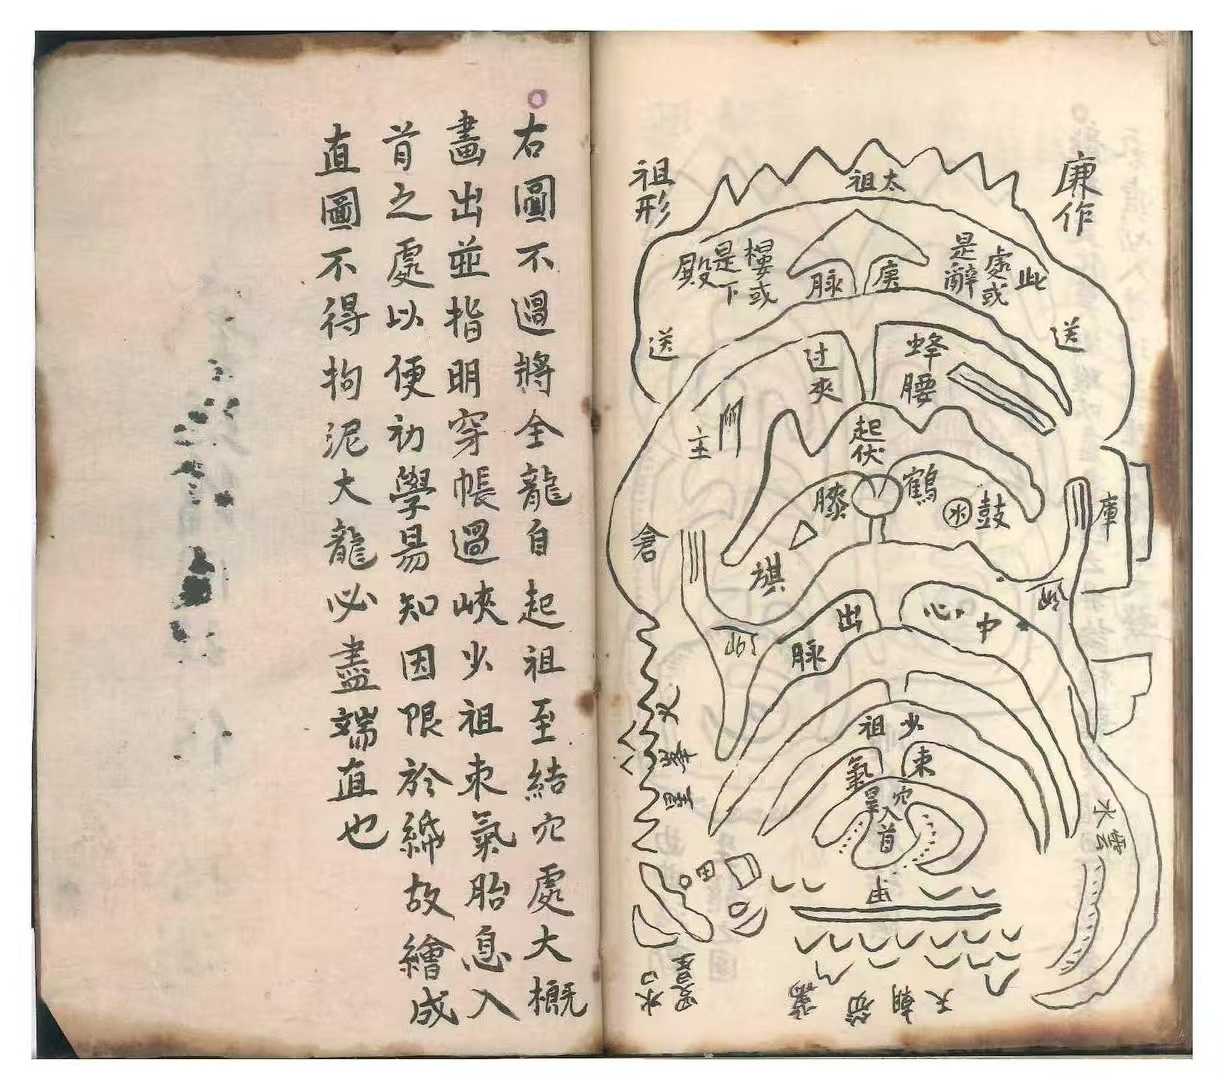 廉作
祖形
太祖
此處或是辭
樓或是下殿
脉
送
送
蜂腰
过夾
主
起伏
鶴膝
鼓
水
旗
倉
庫
中心出脉
少祖
束氣
穴
入首
火星
水雲
田
水口
朝天
右圖不過將全龍自起祖至結穴處大概
畫出並指明穿帳過峽少祖束氣胎息入
首之處以便初學易知因限於紙故繪成
直圖不得拘泥大龍必盡端直也